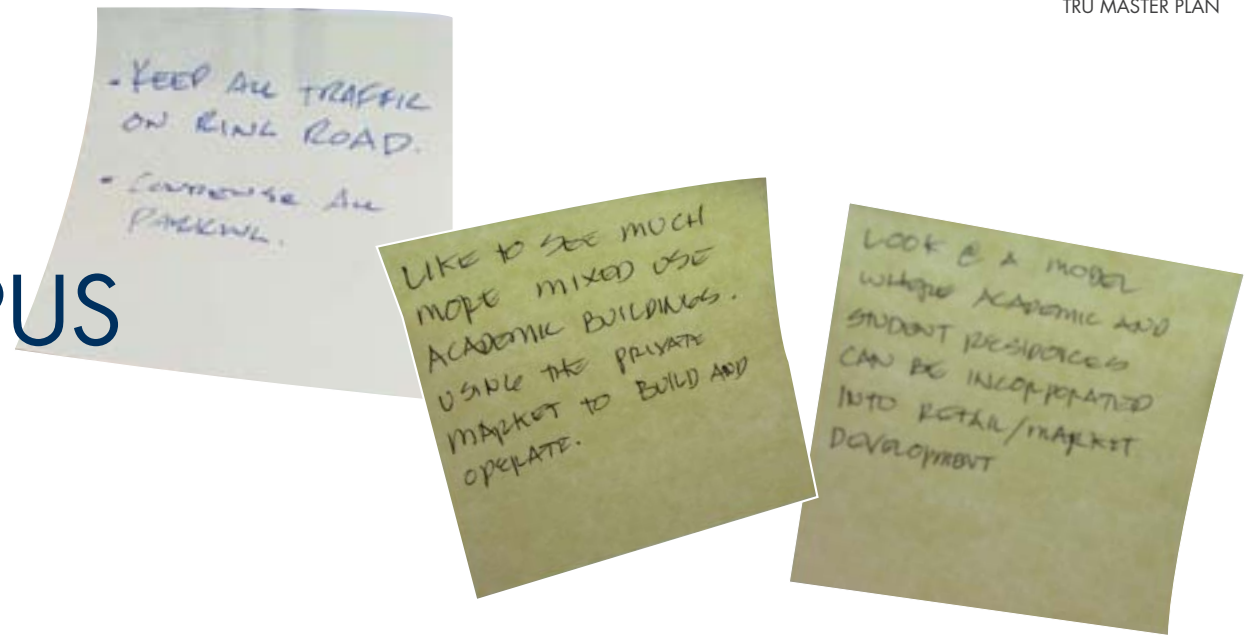 TRU MASTER PLAN
• KEEP ALL TRAFFIC
ON RING ROAD.
• CONDENSE ALL
PARKING.
PUS
LIKE TO SEE MUCH
MORE MIXED USE
ACADEMIC BUILDINGS.
USING THE PRIVATE
MARKET TO BUILD AND
OPERATE.
LOOK @ A MODEL
WHERE ACADEMIC AND
STUDENT RESIDENCES
CAN BE INCORPORATED
INTO RETAIL/MARKET
DEVELOPMENT